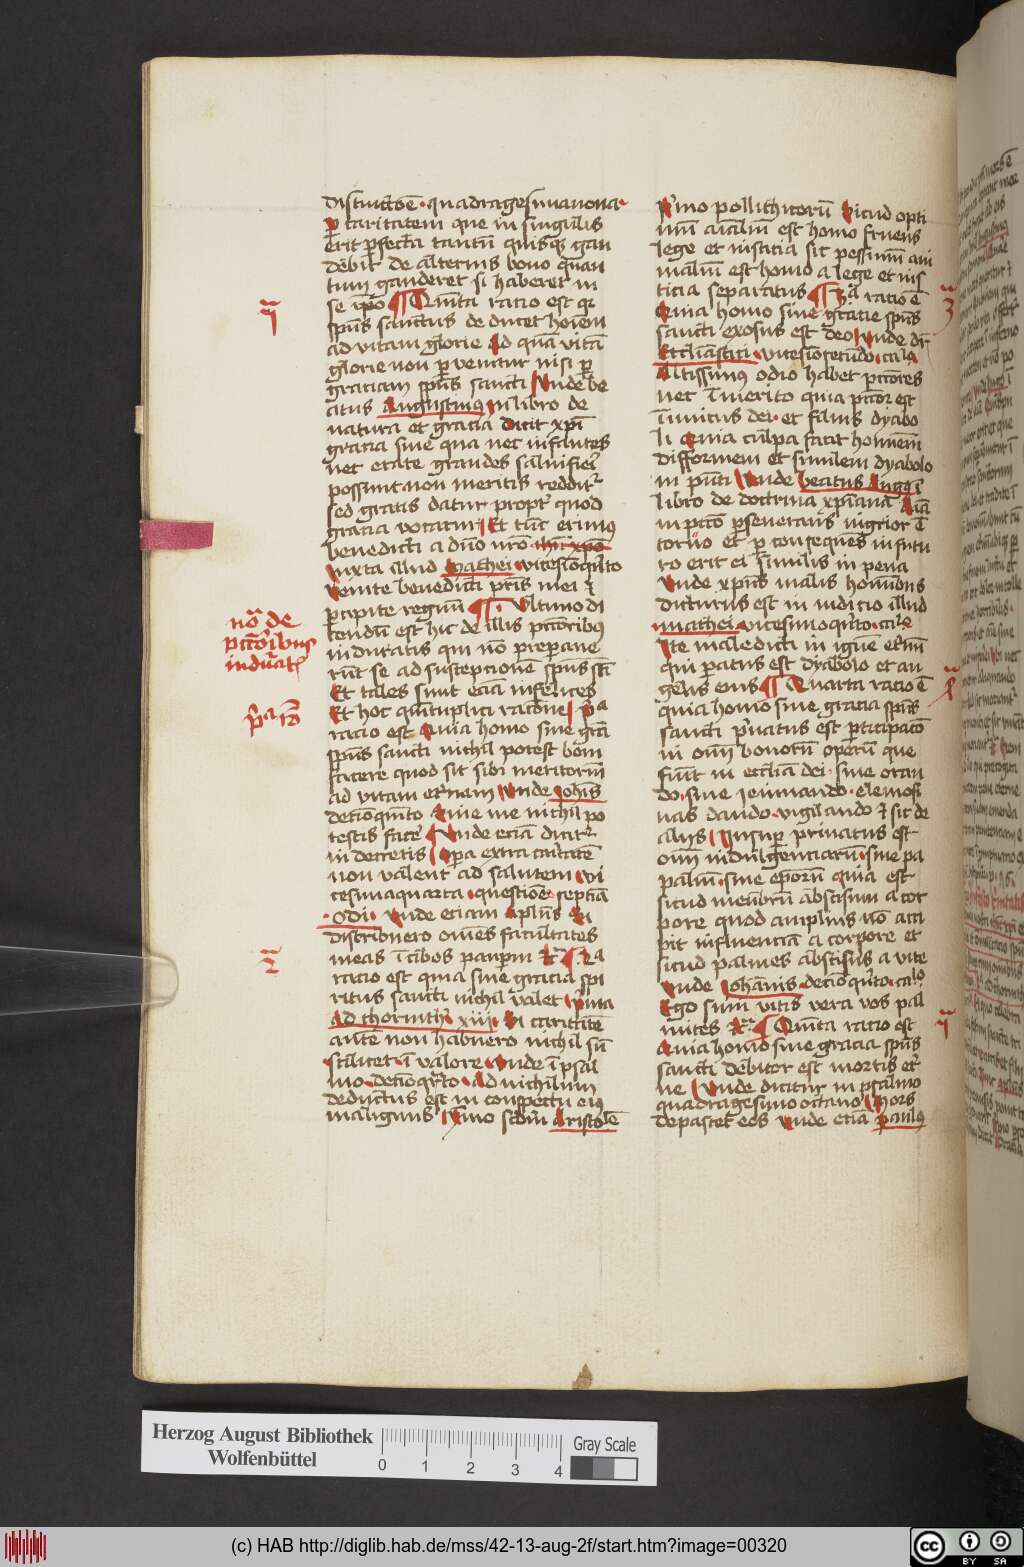 distinctōe · quadragesimanona ·
p̄ caritatem que in singulis
erit p̄fecta tantū quisq gau
debit de alterius bono quan
tum gauderet si haberet in
se ip̄o ¶ Quīta racio est qr
sp̄us sanctus deducet hoīem
ad vitam glorie Ad quā vitā
glorie non pervenitur nisi per
graciam sp̄us sancti Unde be
atus Augustinus in libro de
natura et gracia dicit xp̄i
gracia sine qua nec infantes
nec etate grandes saluifieri
possunt non meritis redditr
sed gratis datur propt quod
gracia vocatur Et tūc erimus
benedicti a dn̄o nr̄o ih̄u xp̄o
iuxta illud Mathei vicesimoqīto
Venite benedicti pr̄is mei
p̄cipite regnum ¶ Ultimo di
cendū est hic de illis pctōribus
induratis qui nō preparaue
rūt se ad suscepcionē sp̄us sc̄i
Et tales sunt eciā infelices
Et hoc quītuplici racione pa
racio est Quia homo sine grā
sp̄us sancti nichil potest boni
facere quod sit sibi meritoriū
ad vitam et̄nam Unde Joh̄is
decīoqīto Sine me nichil po
testis facē Unde eciā dicitr
in decretis Opa extra caritatē
non valent ad salutem vi
cesimaquarta questiōe septīa
Odi Unde eciam Apl̄us Si
distribuero om̄es facultates
meas ī cibos paupm Etc̄ ¶ 2a
racio est quia sine gracia spi
ritus sancti nichil valet prima
ad chorinth xiii Si caritatē
autē non habuero nichil sū
scilicet ī valore Unde ī psal
mo decīoqrto Ad nichilum
deductus est in conspectu eius
malignus Ymo scdm Aristotē
n̄a de
pctōribus
induratis
pa rō
Pīmo pollithicorū Sicud opti
mū aīaliū est homo fruens
lege et iusticia sic pessimū ani
maliū est homo a lege et ius
ticia separatus ¶ 3a racio ē
Quia homo sine gracie sp̄us
sancti exosus est deo Unde dr
Eccliastici vicesimosecūdo calo
Altissimus odio habet pctōres
nec īmerito quia pctor est
īimicus dei et filius dyabo
li Quia culpa facit hominem
difformem et similem dyabolo
in pn̄ti Unde beatus Augg ī
libro de doctrina xp̄iana Aīa
in pctō p̄seuerans nigrior ē
coruo et p̄ consequēs in futu
ro erit ei similis in pena
Unde xp̄us malis hominibus
dicturus est in iudicio illud
mathei vicesimoqīto calo
Ite maledicti in ignē et̄nū
qui paratus est dyabolo et an
gelis eius ¶ Quarta racio ē
quia homo sine gracia sp̄us
sancti p̄uatus est pticipacōe
in om̄i bonorū operum que
fiunt in ecclīa dei siue oran
do siue ieiunando elemosi
nas dando vigilando et sic de
alijs Insup priuatus est
om̄i indulgenciarū siue pa
palium siue ep̄orū quia est
sicud membrū abscisum a cor
pore quod amplius nō acci
pit influenciā a corpore et
sicud palmes abscisus a vite
Unde Johānis decīoqīto calo
Ego sum vitis vera vos pal
mites Etc̄ ¶ Quīta racio est
Quia homo sine gracia sp̄us
sancti debitor est mortis et̄
ne Unde dicitur in psalmo
quadragesimo octauo Mors
depascet eos Unde eciā Paulus
Herzog August Bibliothek
Wolfenbüttel
0 1 2 3 4
Gray Scale
(c) HAB http://diglib.hab.de/mss/42-13-aug-2f/start.htm?image=00320
cc BY SA